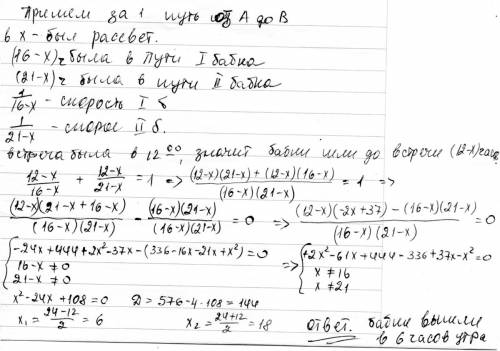 Примем за 1 путь от A до B
в x - был рассвет.
(16-x)ч была в пути I бабка
(21-x)ч была в пути II бабка
1/(16-x) - скорость I б
1/(21-x) - скорос II б.
встреча была в 12⁰⁰, значит бабки шли до встречи (12-x)часа
(12-x)/(16-x) + (12-x)/(21-x) = 1 => ((12-x)(21-x)+(12-x)(16-x))/((16-x)(21-x)) = 1 =>
((12-x)(21-x+16-x))/((16-x)(21-x)) - ((16-x)(21-x))/((16-x)(21-x)) = 0 => ((12-x)(-2x+37)-(16-x)(21-x))/((16-x)(21-x)) = 0
{ -24x+444+2x²-37x-(336-16x-21x+x²)=0 => { +2x²-61x+444-336+37x-x²=0
16-x≠0 x≠16
21-x≠0 x≠21
x²-24x+108=0 D=576-4·108=144
x₁=(24-12)/2=6 x₂=(24+12)/2=18 Ответ. бабки вышли
в 6 часов утра